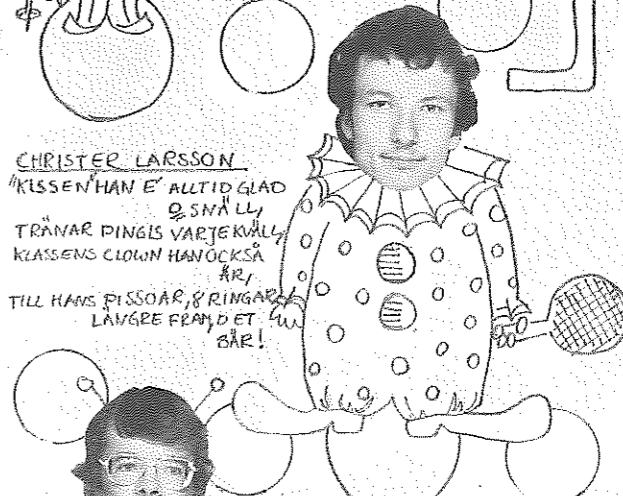 CHRISTER LARSSON
"KISSEN" HAN E' ALLTID GLAD
O SNÄLL,
TRÄNAR PINGIS VARJE KVÄLL,
KLASSENS CLOWN HAN OCKSÅ
ÄR,
TILL HANS PISSOAR, 8 RINGAR,
LÄNGRE FRAM, DET
BÄR!